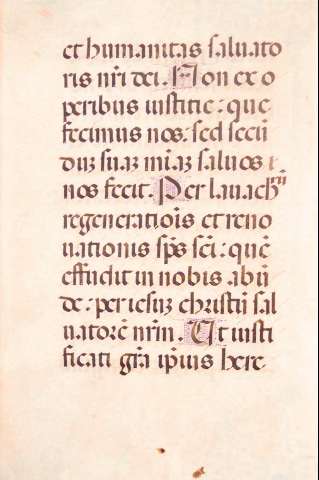 et humanitas saluato
ris nr̃i dei. Non ex o
peribus iustitie: que
fecimus nos: sed secũ
duz suaz miaz saluos
nos fecit. Per lauach
regeneratiois et reno
uationis sp̃s sc̃i: quẽ
effudit in nobis abũ
de: per iesuz christũ sal
uatorẽ nr̃m. Ut iusti
ficati gr̃a ip̃ius here